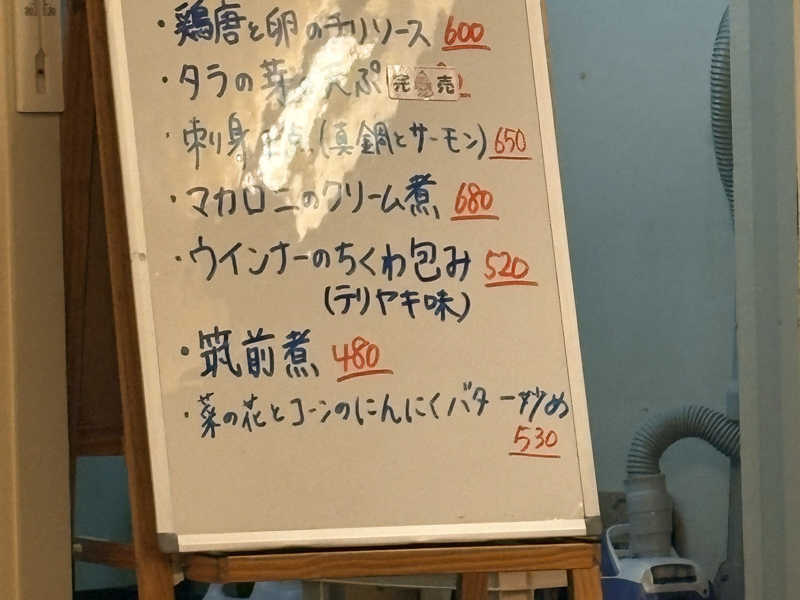 ・鶏唐と卵のチリソース 600
・タラの芽の天ぷ 完売
・刺身2点(真鯛とサーモン) 650
・マカロニのクリーム煮 680
・ウインナーのちくわ包み 520
(テリヤキ味)
・筑前煮 480
・菜の花とコーンのにんにくバター炒め
530